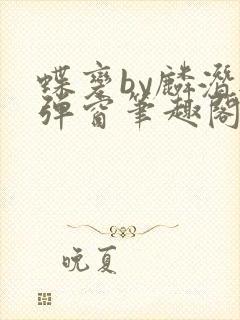 蝶变by麟潜无
弹窗笔趣阁
晚夏